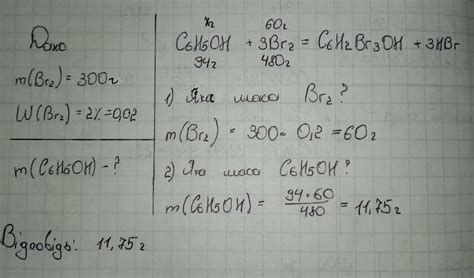 Дано
m(Br₂) = 300г
W(Br₂) = 2% = 0,02
m(C6H5OH) - ?
Xг 60г
C6H5OH + 3Br₂ = C6H2Br3OH + 3HBr
94г 480г
1) Яка маса Br₂?
m(Br₂) = 300 · 0,2 = 60г
2) Яка маса C6H5OH?
m(C6H5OH) = 94·60/480 = 11,75г
Відповідь: 11,75г